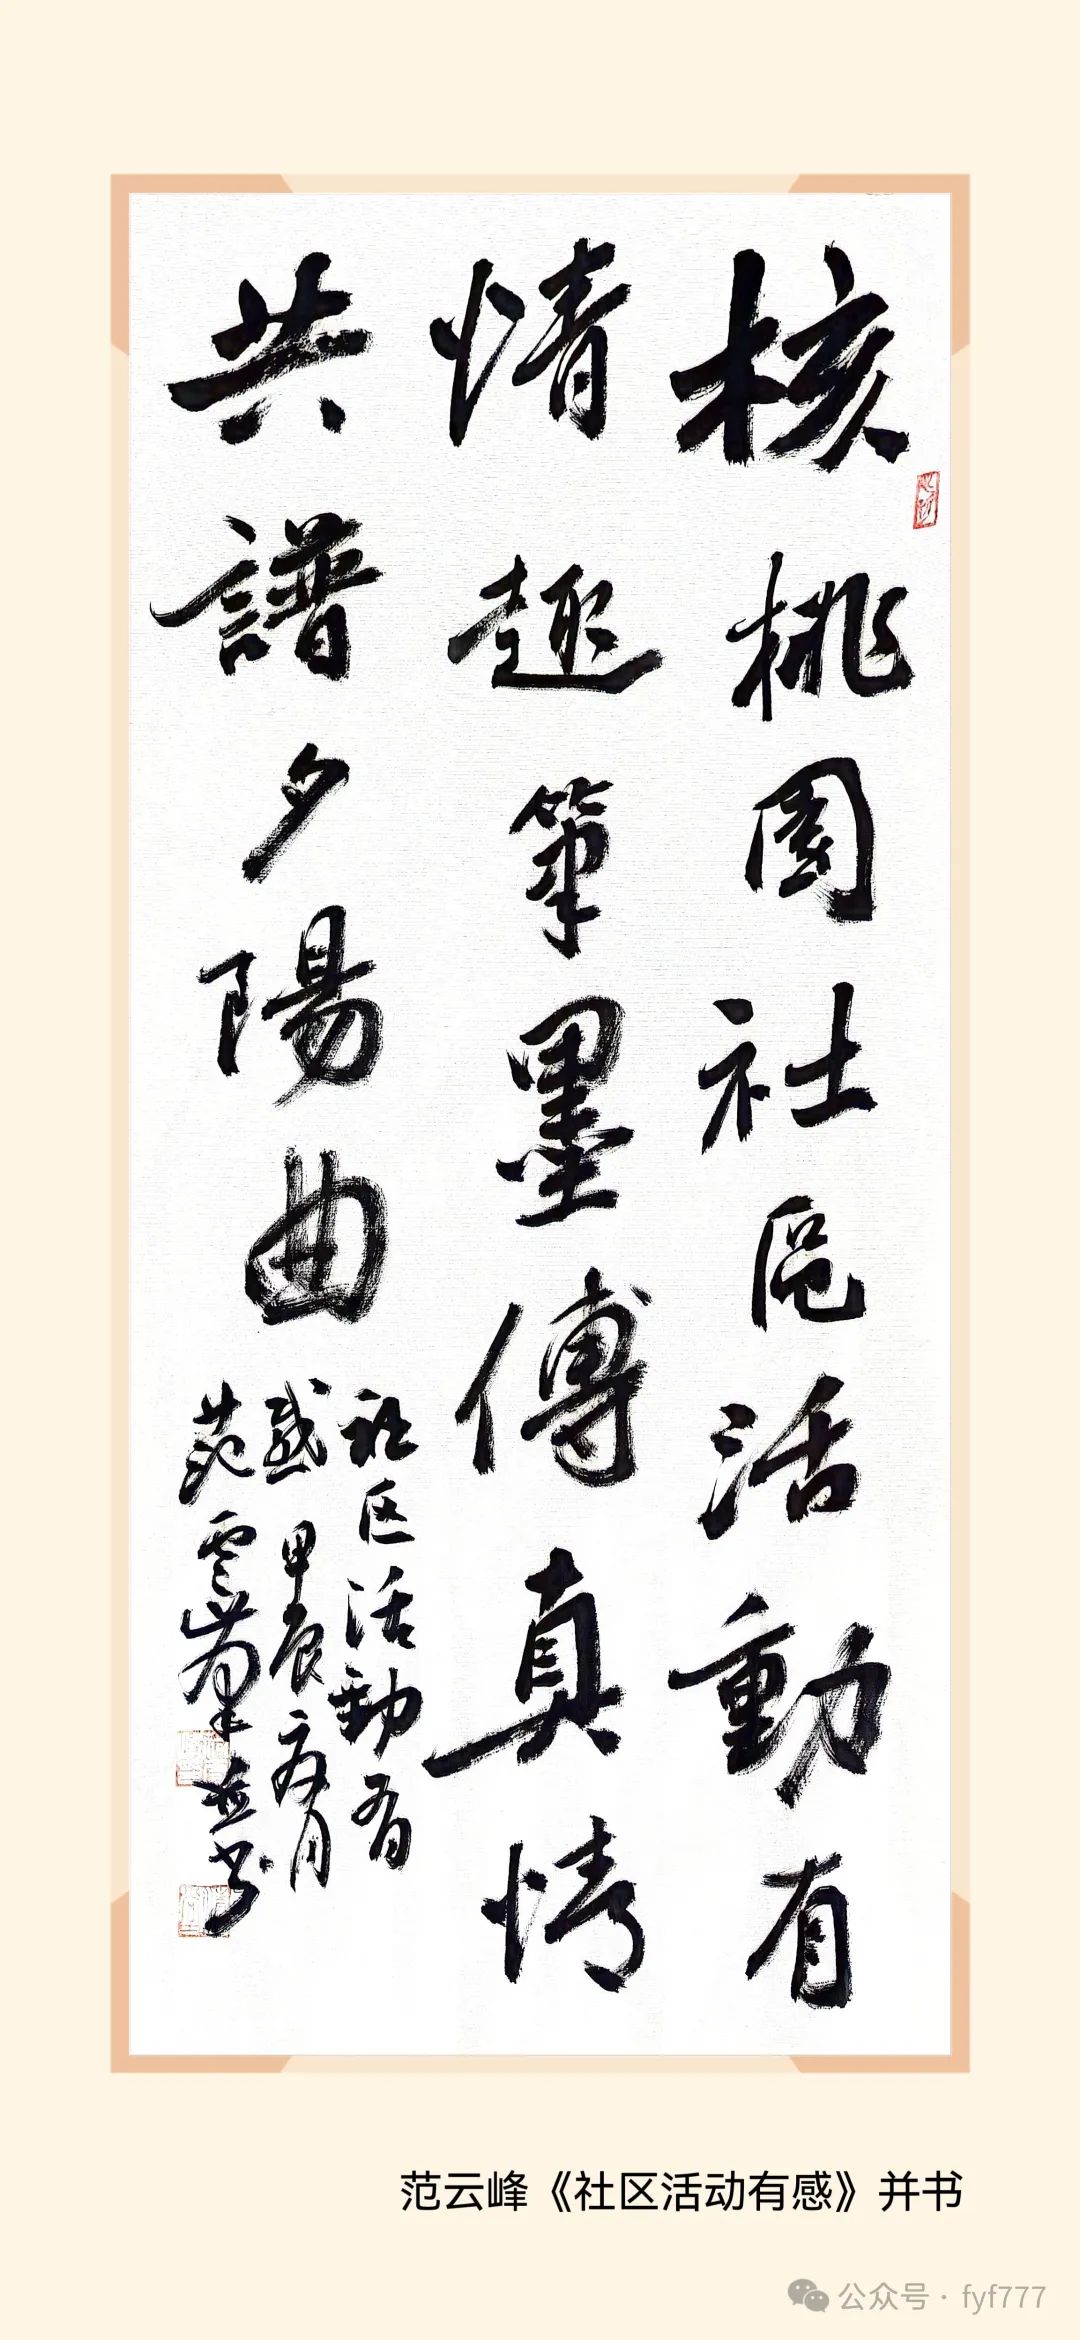 核桃園社區活動有
情趣筆墨傳真情
共譜夕陽曲
社区活動有
感甲辰六月
范雲峯並书
范云峰《社区活动有感》并书
公众号 · fyf777